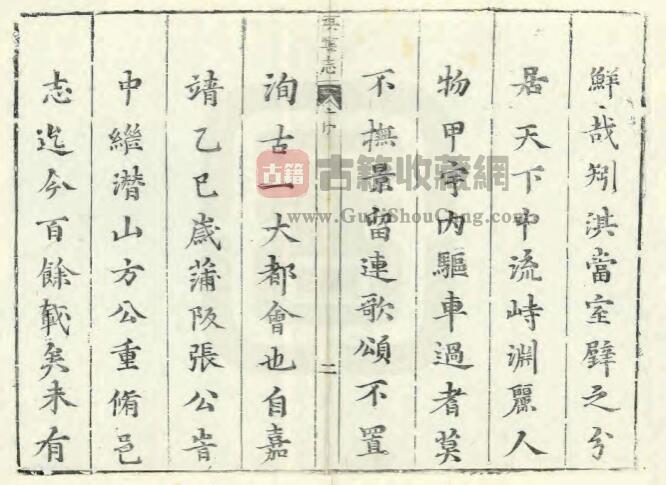 鮮哉矧淇當室壁之分
居天下中流峙淵麗人
物甲宇内驅車過者莫
不撫景留連歌頌不置
志
序
二
洵古一大都會也自嘉
靖乙巳歲蒲阪張公
中繼潛山方公重脩邑
志迄今百餘載矣未有
古籍
古籍收藏網
www.GuJiShouCang.com